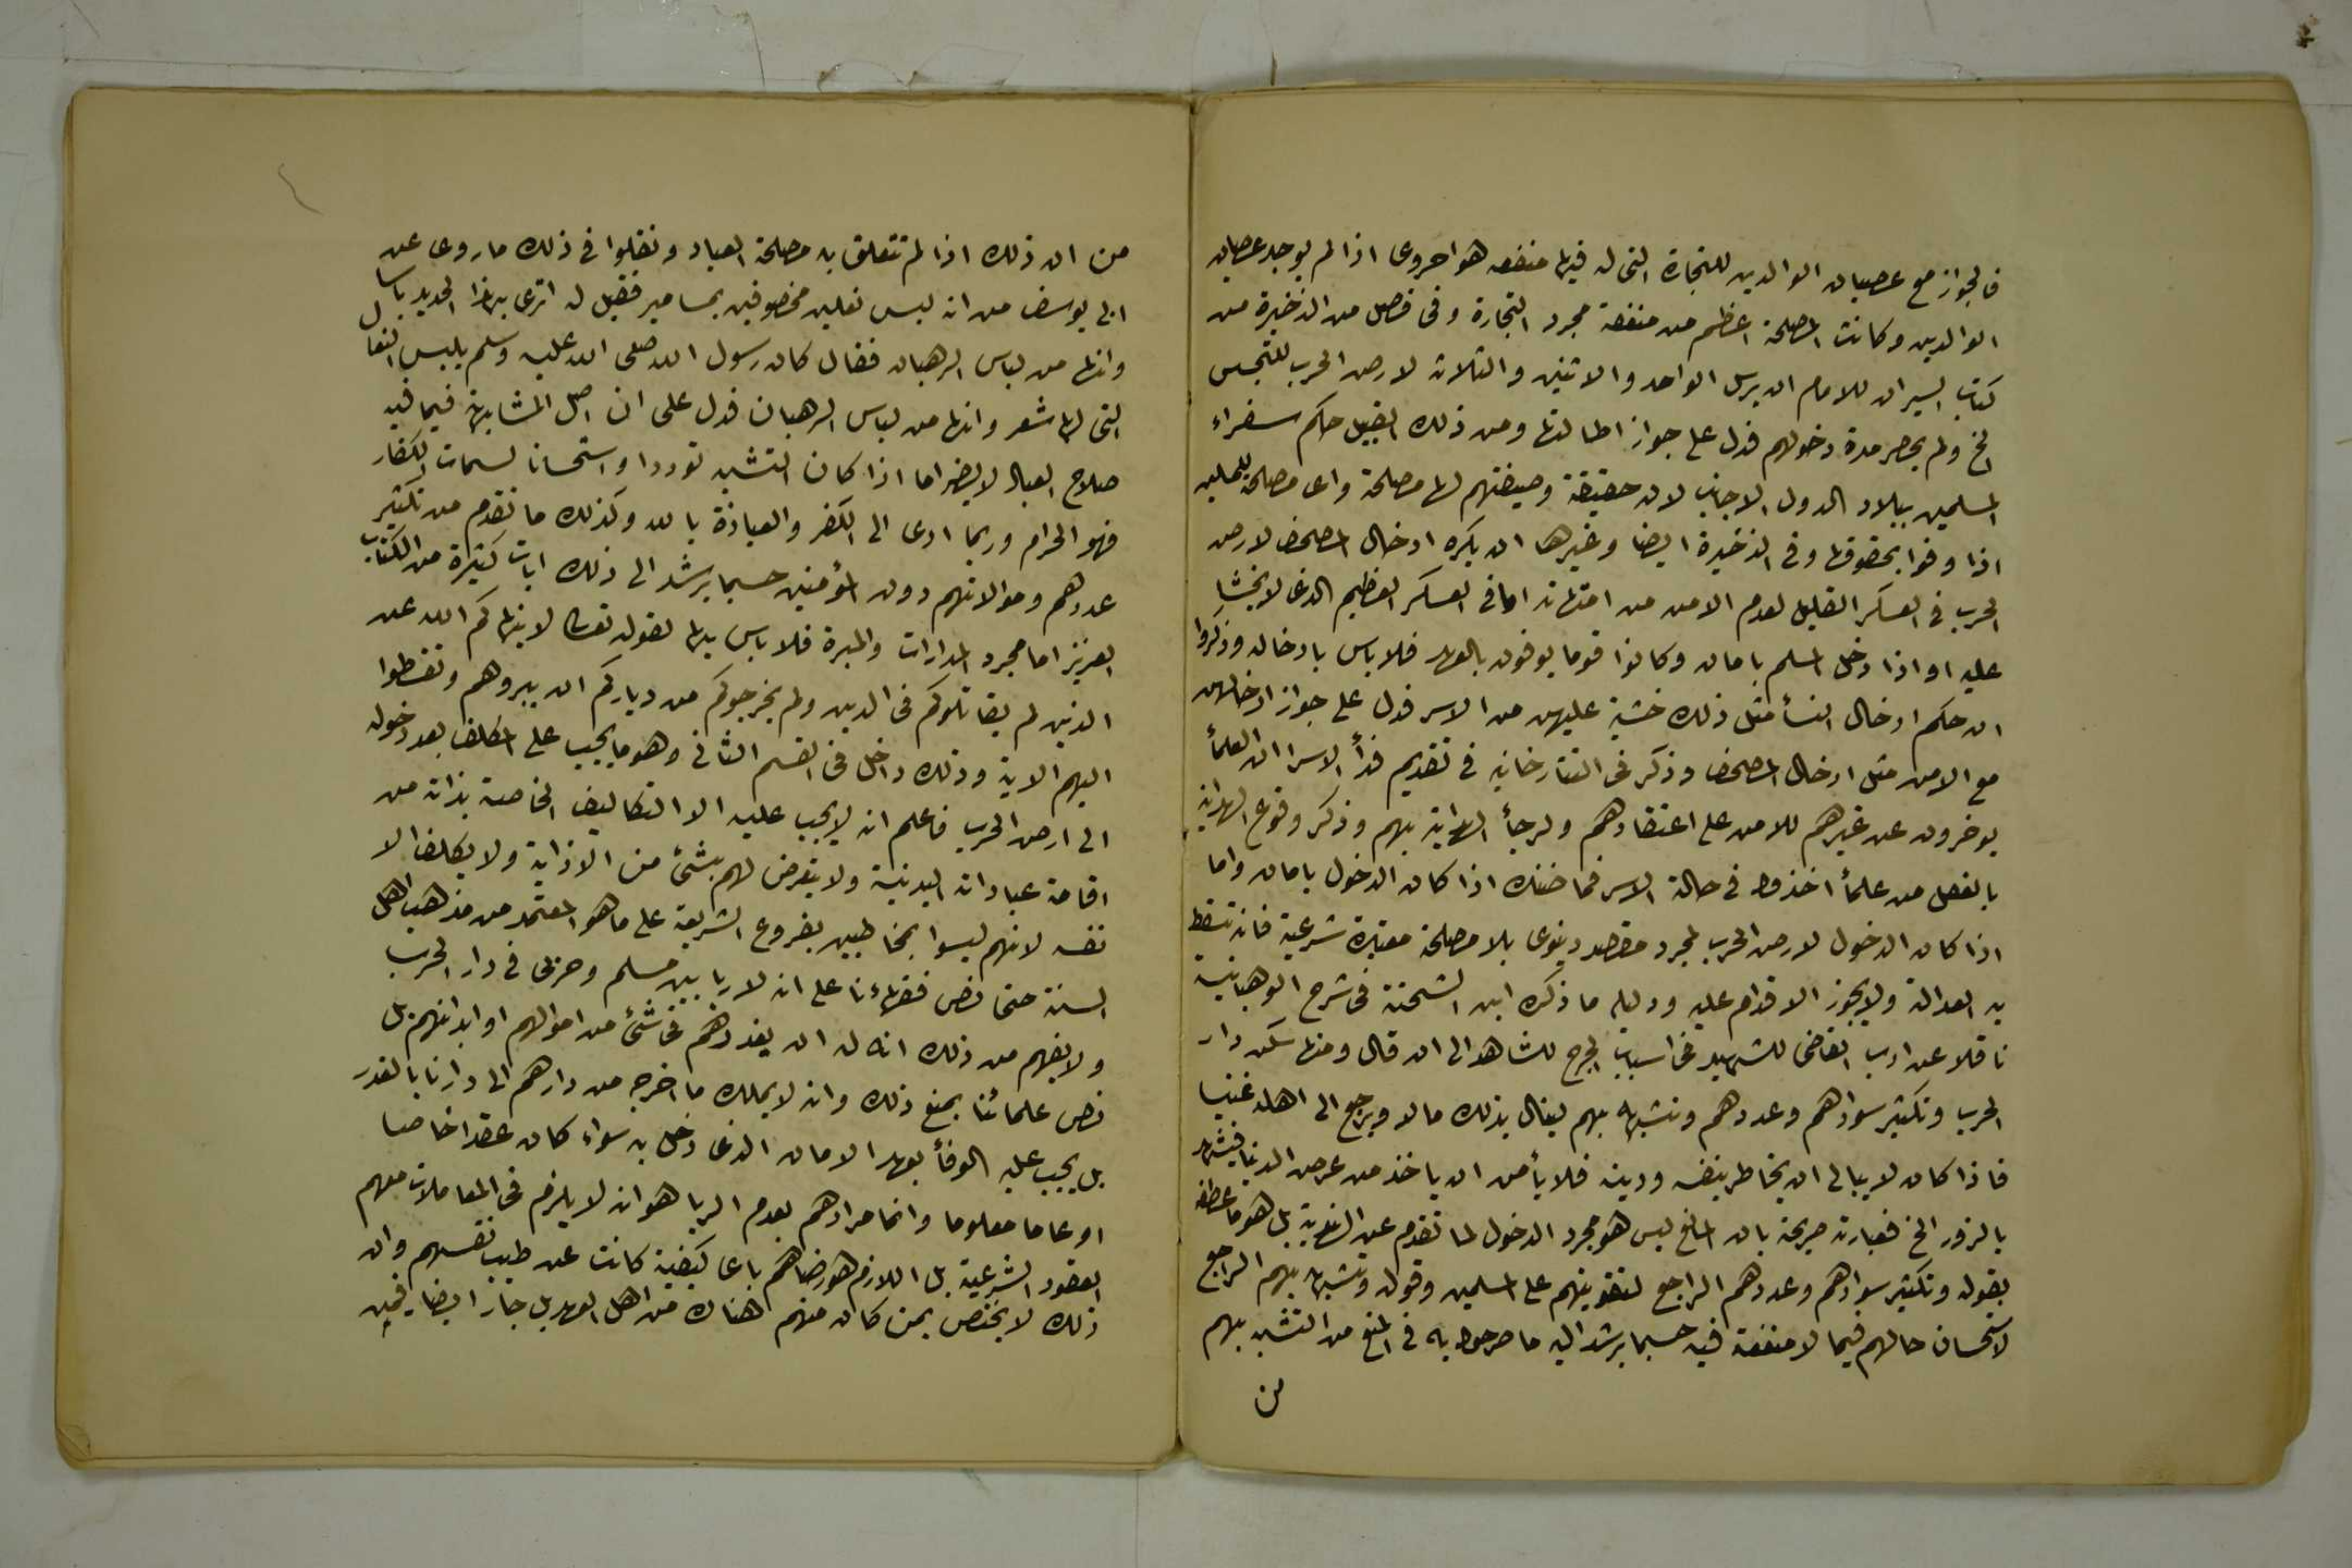 فالجواز مع عصيان الوالدين للتجارة التى له فيها منفعه هو احروى اذا لم يوجد عصيان
الوالدين وكانت المصلحة اعظم من منفعة مجرد التجارة وفى فصل من الذخيرة من
كتاب السير ان للامام ان يرسل الواحد والاثنين والثلاثه لارض الحرب للتجسس
الخ ولم يحصر مدة دخولهم فدل على جواز اطالتها ومن ذلك القبيل حكم سفراء
المسلمين ببلاد الدول الاجانب لان حقيقة وصيفتهم لها مصلحة واى مصلحة للمسلمين
اذا وفوا بحقوقها وفى الذخيرة ايضا وغيرها ان يكره ادخال المصحف لارض
الحرب فى العسكر القليل لعدم الامن من امتهانه اما فى العسكر العظيم الذى لا يخشا
عليه او اذا دخل المسلم بامان وكانوا قوما يوفون بالعهد فلا باس بادخاله وذكروا
ان حكم ادخال النسأ مثل ذلك خشية عليهن من الاسر فدل على جواز ادخالهن
مع الامن مثل ادخال المصحف وذكر فى التتارخانيه فى تقديم فدأ الاسرا ان العلمأ
يوخرون عن غيرهم للامن على اعتقادهم ولرجأ الهداية بهم وذكر وقوع الهداية
بالفعل من علمأ اخذوا فى حالة الاسر فما ضنك اذا كان الدخول بامان واما
اذا كان الدخول لارض الحرب لمجرد مقصد دنيوى بلا مصلحة معتبرة شرعية فانه تسقط
به العدالة ولا يجوز الاقدام عليه ودليله ما ذكره ابن الشحنة فى شرح الوهبانية
ناقلا عن ادب القاضى للشهيد فى اسباب الجرح للشاهد الى ان قال ومنها سكن دار
الحرب وتكثير سوادهم وعددهم وتشبهه بهم لينال بذلك مالا ويرجع الى اهله غنيا
فاذا كان لا يبالى ان يخاطر بنفسه ودينه فلا يأمن ان ياخذ من عرض الدنيا فيشهد
بالزور الخ فعبارته صريحة بان المانع ليس هو مجرد الدخول لما تقدم عن الهندية بل هو ما عطفه
بقوله وتكثير سوادهم وعددهم الراجع لتقويتهم على المسلمين وقوله وتشبهه بهم الراجع
لاستحسان حالهم فيما لا منفعة فيه حسبما يرشد اليه ما صرحوا به فى المنع من التشبه بهم
من
من ان ذلك اذا لم تتعلق به مصلحة العباد ونقلوا فى ذلك ما روى عن
ابى يوسف من انه لبس نعلين مخصوفين بمسامير فقيل له اترى بهذا الحديد باسا
وانها من لباس الرهبان فقال كان رسول الله صلى الله عليه وسلم يلبس النعال
التى لها شعر وانها من لباس الرهبان فدل على ان اصل المشابهة فيما فيه
صلاح العباد لا يضر اما اذا كان التشبه توددا واستحسانا لسمات الكفار
فهو الحرام وربما ادى الى الكفر والعياذة بالله وكذلك ما تقدم من تكثير
عددهم وموالاتهم دون المؤمنين حسبما يرشد الى ذلك ايات كثيرة من الكتاب
العزيز اما مجرد المدارات والمبرة فلا باس بها لقوله تعالى لا ينهاكم الله عن
الذين لم يقاتلوكم فى الدين ولم يخرجوكم من دياركم ان يبروهم وتقسطوا
اليهم الاية وذلك داخل فى القسم الثانى وهو ما يجب على المكلف بعد دخوله
الى ارض الحرب فاعلم انه لا يجب عليه الا التكاليف الخاصة بذاته من
اقامة عباداته البدنية ولا يتعرض لهم بشئ من الاذاية ولا يكلف الا
نفسه لانهم ليسوا بمخاطبين بفروع الشريعة على ما هو المعتمد من مذهب اهل
السنة حتى نص فقهاءنا على انه لا ربا بين مسلم وحربى فى دار الحرب
ولا يفهم من ذلك انه له ان يغدرهم فى شئ من اموالهم او ابدانهم بل
نص علمائنا بمنع ذلك وانه لا يملك ما اخرجه من دارهم الى دارنا بالغدر
بل يجب عليه الوفأ بعهد الامان الذى دخل به سواء كان عقدا خاصا
او عاما معلوما وانما مرادهم بعدم الربا هو انه لا يلزم فى المعاملات معهم
العقود الشرعية بل اللازم هو رضاهم باى كيفية كانت عن طيب نفسهم وان
ذلك لا يختص بمن كان منهم هناك من اهل العهد بل جار ايضا فيمن